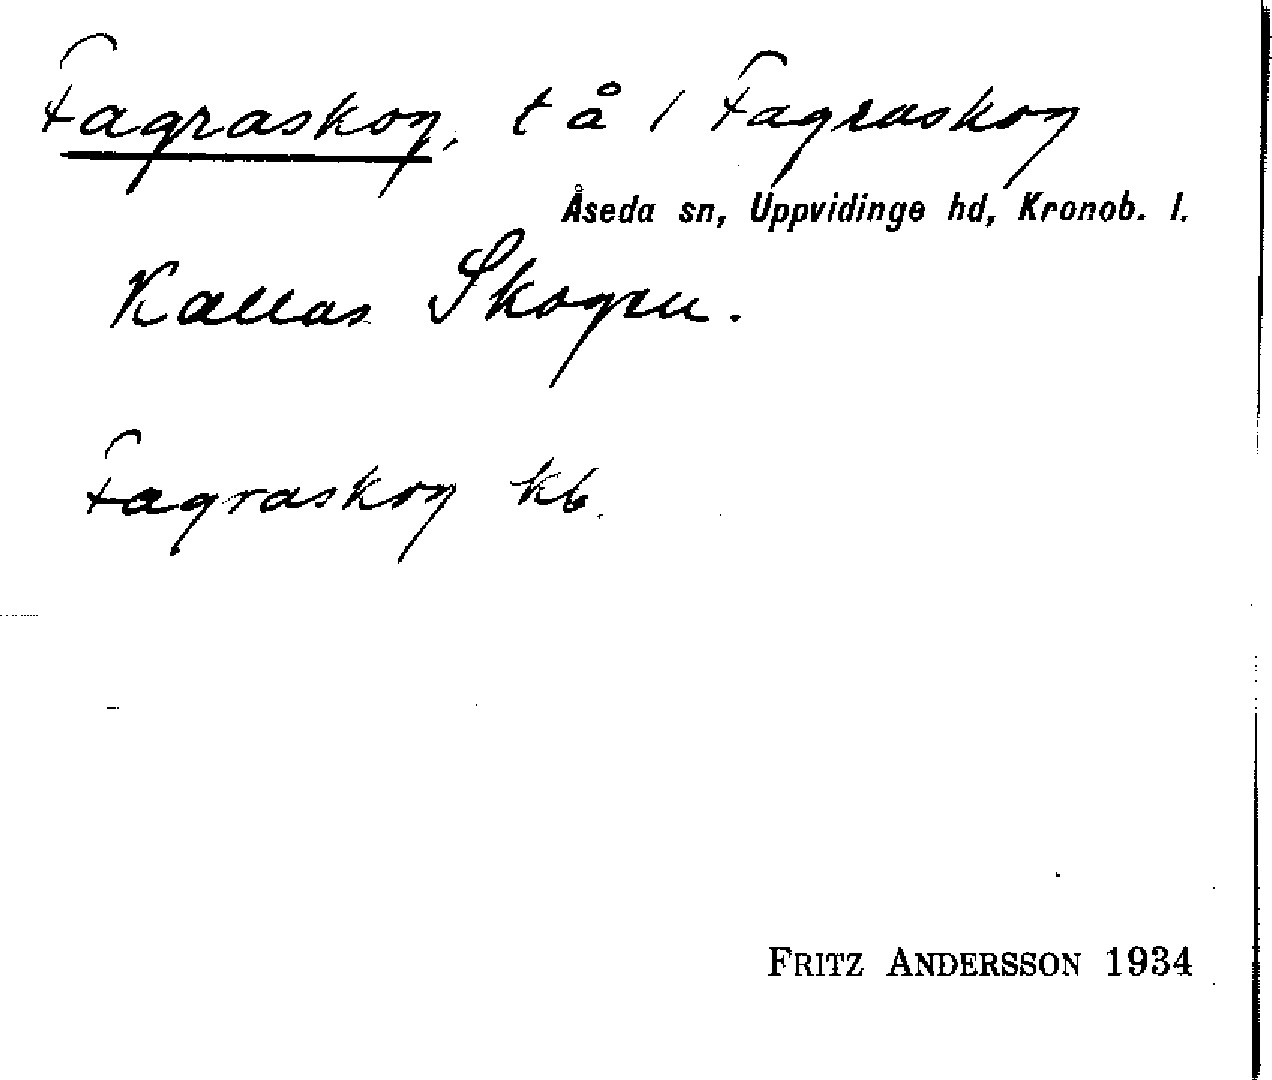 Fagraskog, tå / Fagraskog
Åseda sn, Uppvidinge hd, Kronob. l.
Kallas Skogen.
Fagraskog kb.
FRITZ ANDERSSON 1934